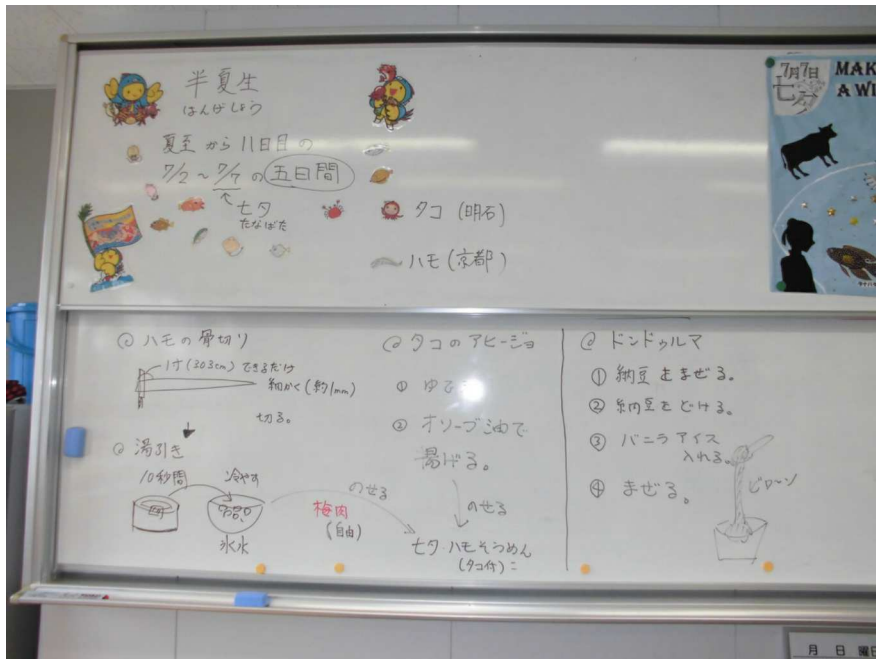 半夏生
はんげしょう
夏至から11日目の
7/2～7/7の五日間
↑七夕
たなばた
タコ (明石)
ハモ (京都)
7月7日
七夕
MAK
A WI
@ ハモの骨切り
1寸(3.03cm)できるだけ
細かく(約1mm)
切る。
@ 湯引き
10秒間
冷やす
氷水
のせる
梅肉
(自由)
@ タコのアヒージョ
① ゆでる
② オリーブ油で
揚げる。
のせる
七夕ハモそうめん
(タコ付)
@ ドンドゥルマ
① 納豆をまぜる。
② 納豆をどける。
③ バニラアイス
入れる。
④ まぜる。
ビローン
月 日 曜日